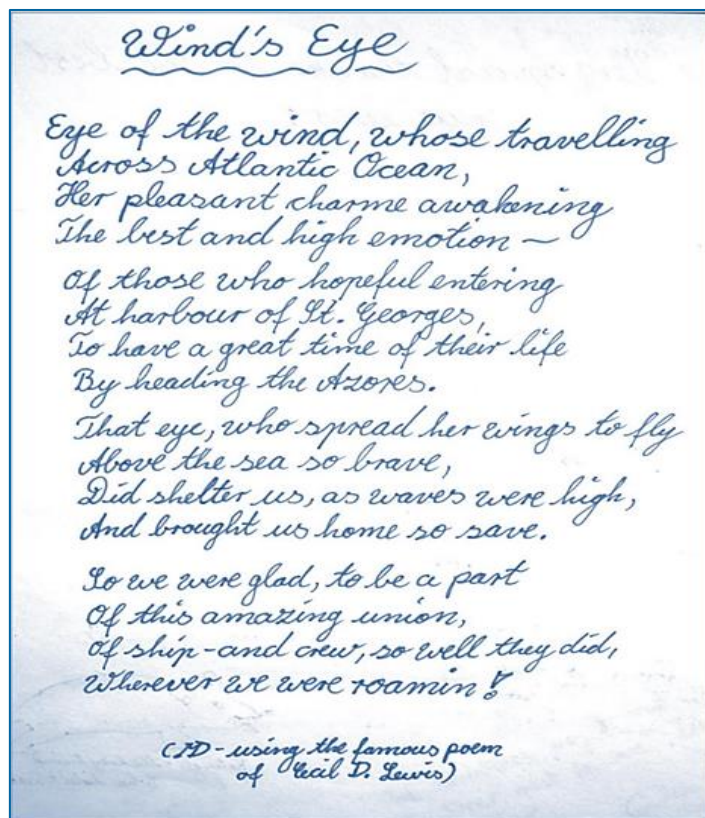 Wind's Eye
Eye of the wind, whose travelling
Across Atlantic Ocean,
Her pleasant charme awakening
The best and high emotion –
Of those who hopeful entering
At harbour of St. Georges,
To have a great time of their life
By heading the Azores.
That eye, who spread her wings to fly
Above the sea so brave,
Did shelter us, as waves were high,
And brought us home so save.
So we were glad, to be a part
Of this amazing union,
Of ship-and crew, so well they did,
Wherever we were roamin!
- using the famous poem
of Cecil D. Lewis)